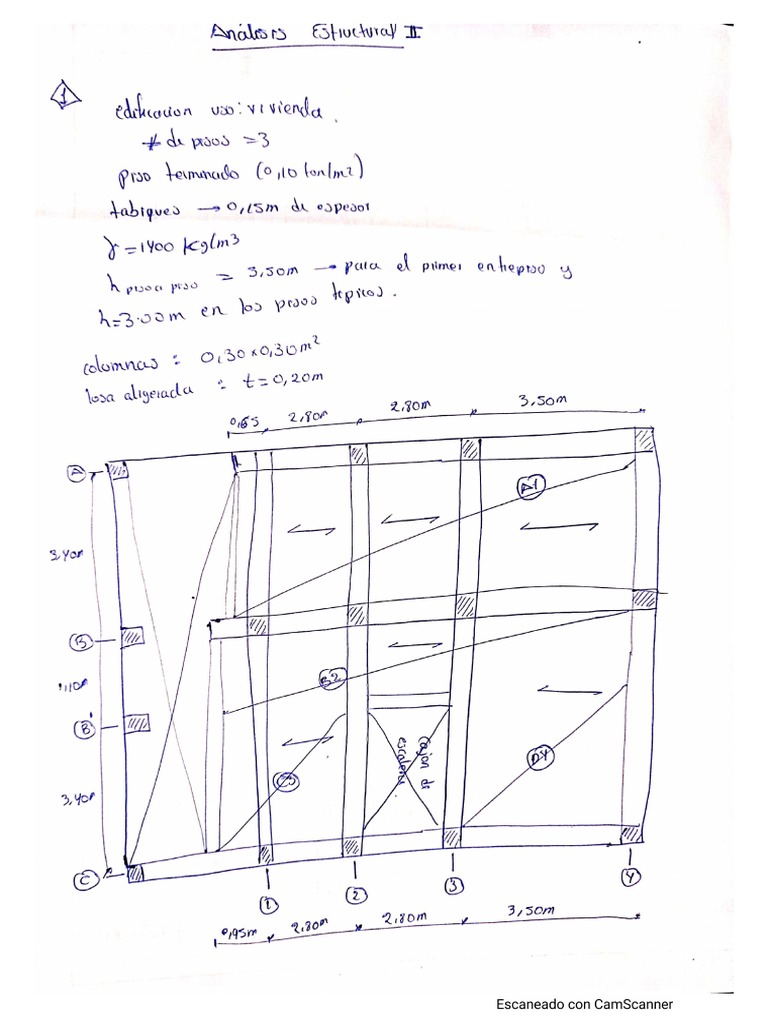 Análisis Estructural II
1
edificacion uso: vivienda.
# de pisos = 3
piso terminado (0,10 ton/m2)
tabiques → 0,15m de espesor
γ = 1400 kg/m3
h piso a piso = 3,50m → para el primer entrepiso y
h=3.00m en los pisos tipicos.
columnas = 0,30x0,30m2
losa aligerada : t=0,20m
0,65 2,80m 2,80m 3,50m
A
A1
3,40m
B
B2
1,10m
B'
D4
C3
Cajon de
escalera
3,40m
C
1 2 3 4
0,95m 2,80m 2,80m 3,50m
Escaneado con CamScanner